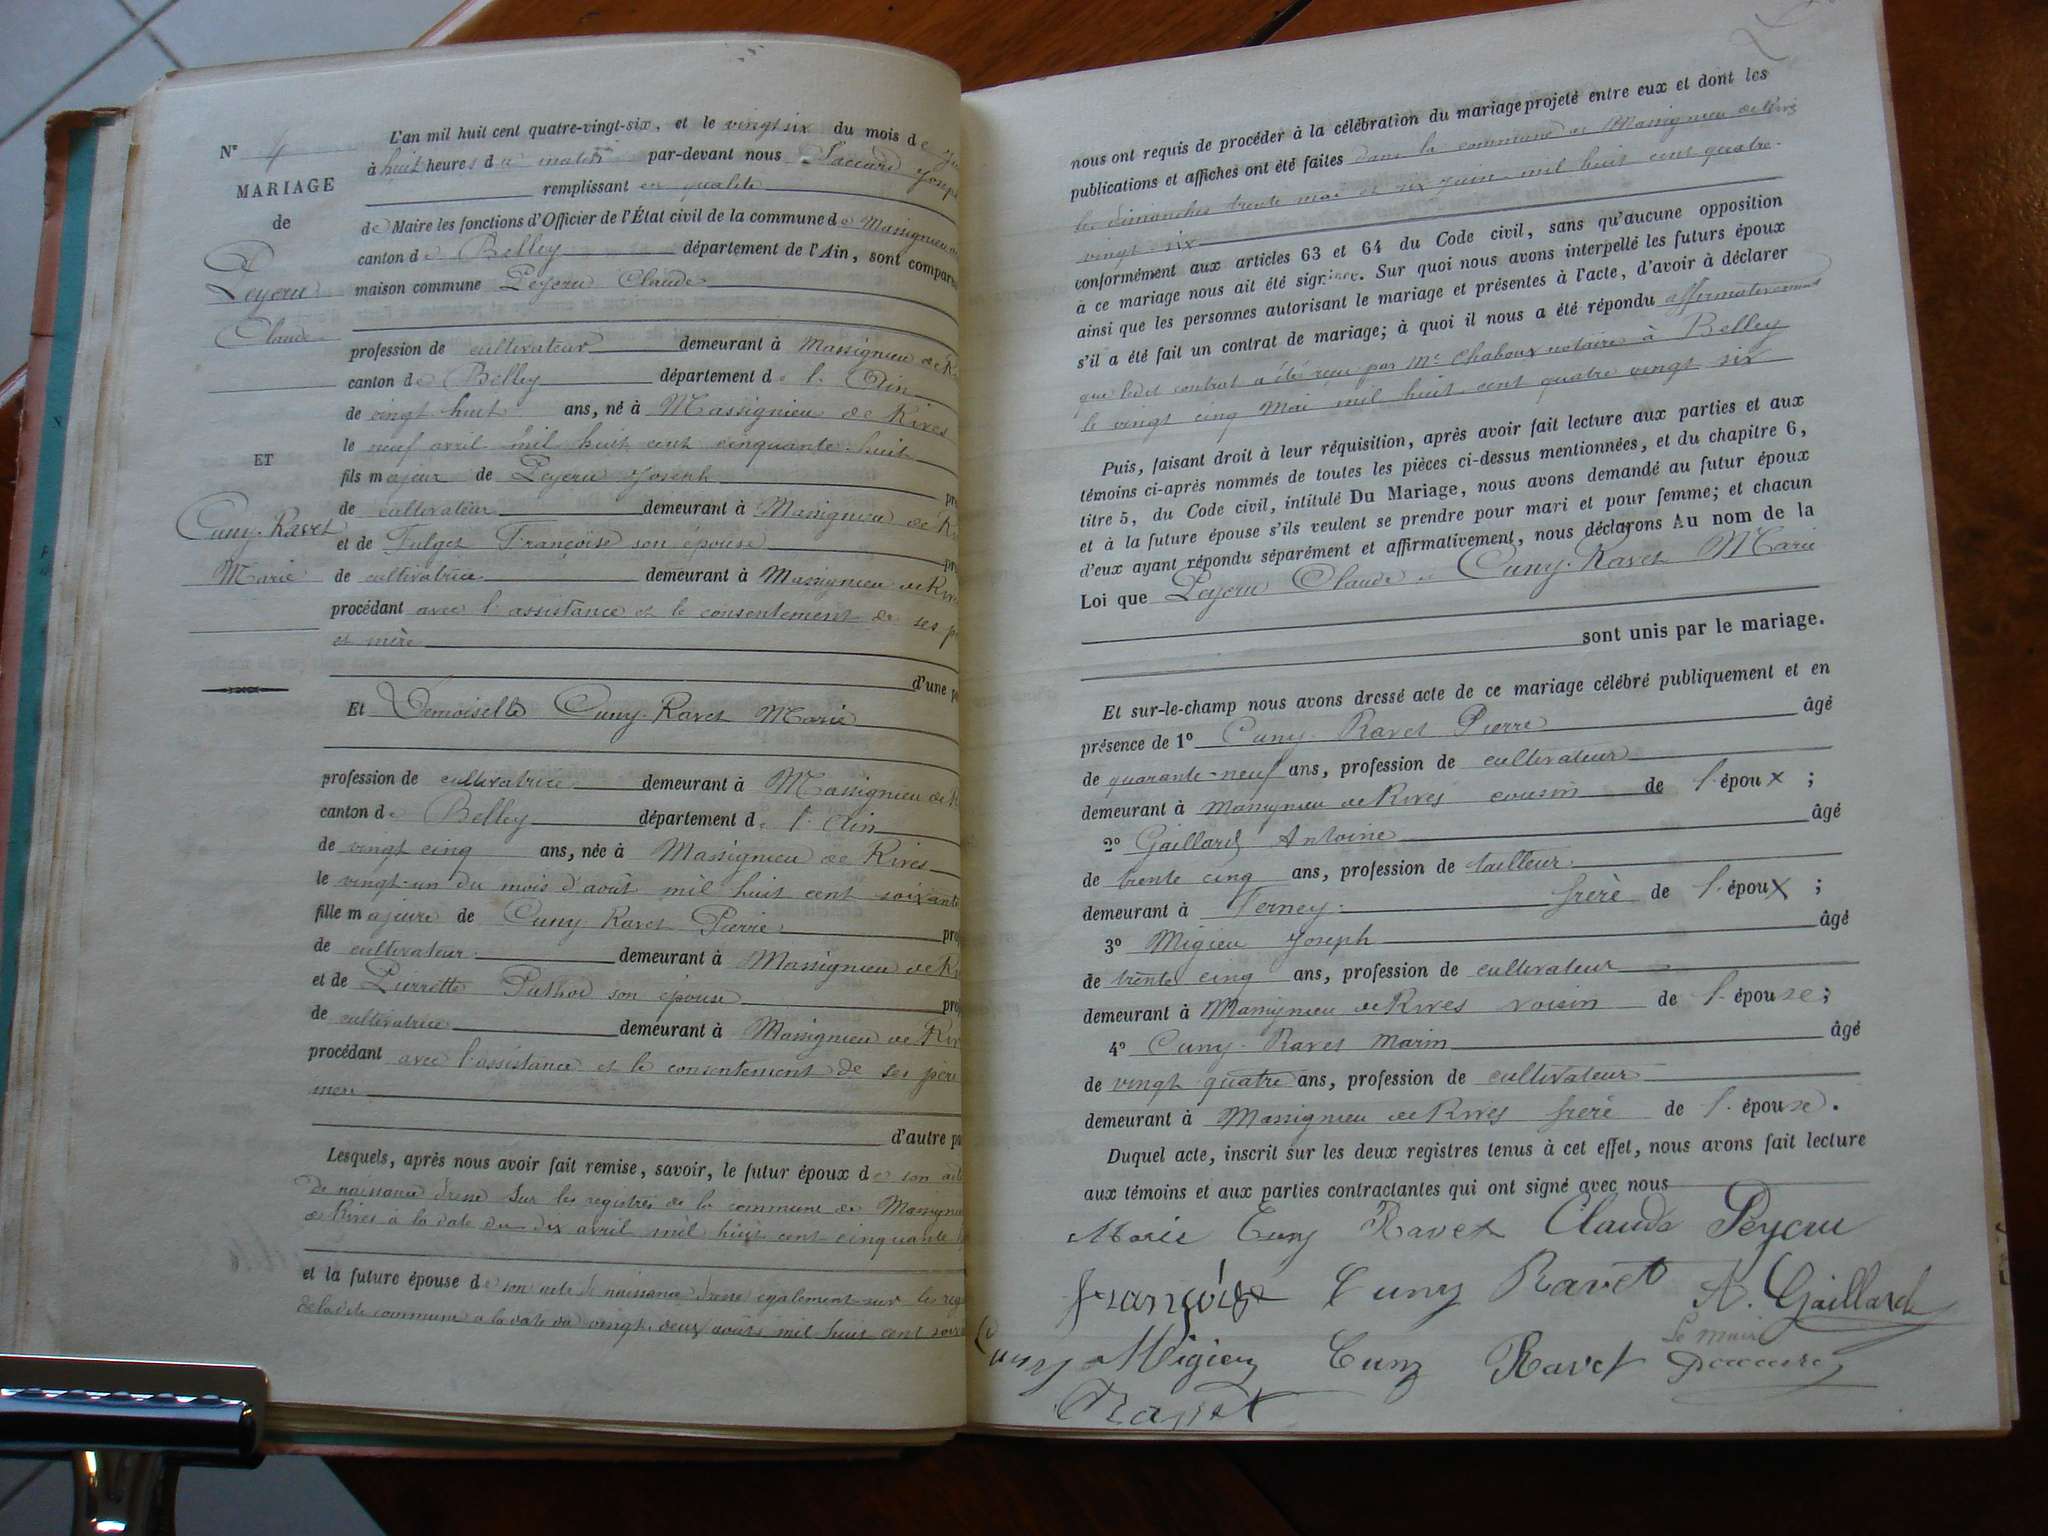 N° 4
MARIAGE
de
Peyeru
Claude
ET
Cuny-Ravet
Marie
L'an mil huit cent quatre-vingt-six, et le vingt six du mois de
à huit heures du matin par-devant nous Joseph
remplissant en qualité
de Maire les fonctions d'Officier de l'État civil de la commune de Massignieu
canton de Belley département de l'Ain, sont compar
maison commune Peyeru Claude
profession de cultivateur demeurant à Massignieu de
canton de Belley département de l'Ain
de vingt huit ans, né à Massignieu de Rives
le neuf avril mil huit cent cinquante-huit
fils majeur de Peyeru Joseph
de cultivateur demeurant à Massignieu de
et de Françoise son épouse
de cultivatrice demeurant à Massignieu de Rives
procédant avec l'assistance et le consentement de ses
et mère
d'une
Et Demoiselle Cuny-Ravet Marie
profession de cultivatrice demeurant à Massignieu de
canton de Belley département de l'Ain
de vingt cinq ans, née à Massignieu de Rives
le vingt-un du mois d'août mil huit cent soixante
fille majeure de Cuny Ravet Pierre
de cultivateur demeurant à Massignieu de
et de Pierrette son épouse
de cultivatrice demeurant à Massignieu de
procédant avec l'assistance et le consentement de ses père
mère
d'autre
Lesquels, après nous avoir fait remise, savoir, le futur époux de son acte
de naissance dressé sur les registres de la commune de Massignieu
de Rives à la date du dix avril mil huit cent cinquante
et la future épouse de son acte de naissance dressé également sur les
de la dite commune a la date du vingt-deux août mil huit cent
nous ont requis de procéder à la célébration du mariage projeté entre eux et dont les
publications et affiches ont été faites dans la commune de Massignieu de Rives
les dimanches trente mai et six juin mil huit cent quatre-
vingt-six
conformément aux articles 63 et 64 du Code civil, sans qu'aucune opposition
à ce mariage nous ait été signifiée. Sur quoi nous avons interpellé les futurs époux
ainsi que les personnes autorisant le mariage et présentes à l'acte, d'avoir à déclarer
s'il a été fait un contrat de mariage; à quoi il nous a été répondu affirmativement
que ledit contrat a été reçu par Me Chaboux notaire à Belley
le vingt cinq Mai mil huit cent quatre vingt six
Puis, faisant droit à leur réquisition, après avoir fait lecture aux parties et aux
témoins ci-après nommés de toutes les pièces ci-dessus mentionnées, et du chapitre 6,
titre 5, du Code civil, intitulé Du Mariage, nous avons demandé au futur époux
et à la future épouse s'ils veulent se prendre pour mari et pour femme; et chacun
d'eux ayant répondu séparément et affirmativement, nous déclarons Au nom de la
Loi que Peyeru Claude et Cuny-Ravet Marie
sont unis par le mariage.
Et sur-le-champ nous avons dressé acte de ce mariage célébré publiquement et en
présence de 1° Cuny-Ravet Pierre âgé
de quarante-neuf ans, profession de cultivateur
demeurant à Massignieu de Rives cousin de l'époux ;
2° Gaillard Antoine âgé
de trente cinq ans, profession de tailleur
demeurant à Ferney frère de l'époux ;
3° Migieu Joseph âgé
de trente cinq ans, profession de cultivateur
demeurant à Massignieu de Rives voisin de l'épouse ;
4° Cuny-Ravet Marin âgé
de vingt quatre ans, profession de cultivateur
demeurant à Massignieu de Rives frère de l'épouse.
Duquel acte, inscrit sur les deux registres tenus à cet effet, nous avons fait lecture
aux témoins et aux parties contractantes qui ont signé avec nous
Marie Cuny Ravet Claude Peyeru
françoise Cuny Ravet A. Gaillard
Cuny Migieu Cuny Ravet Le maire
Ravet